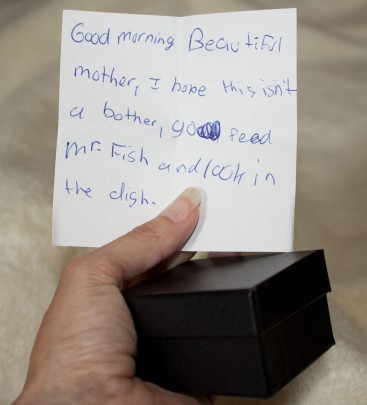 Good morning Beautiful
mother, I hope this isn't
a bother, go feed
Mr. Fish and look in
the dish.